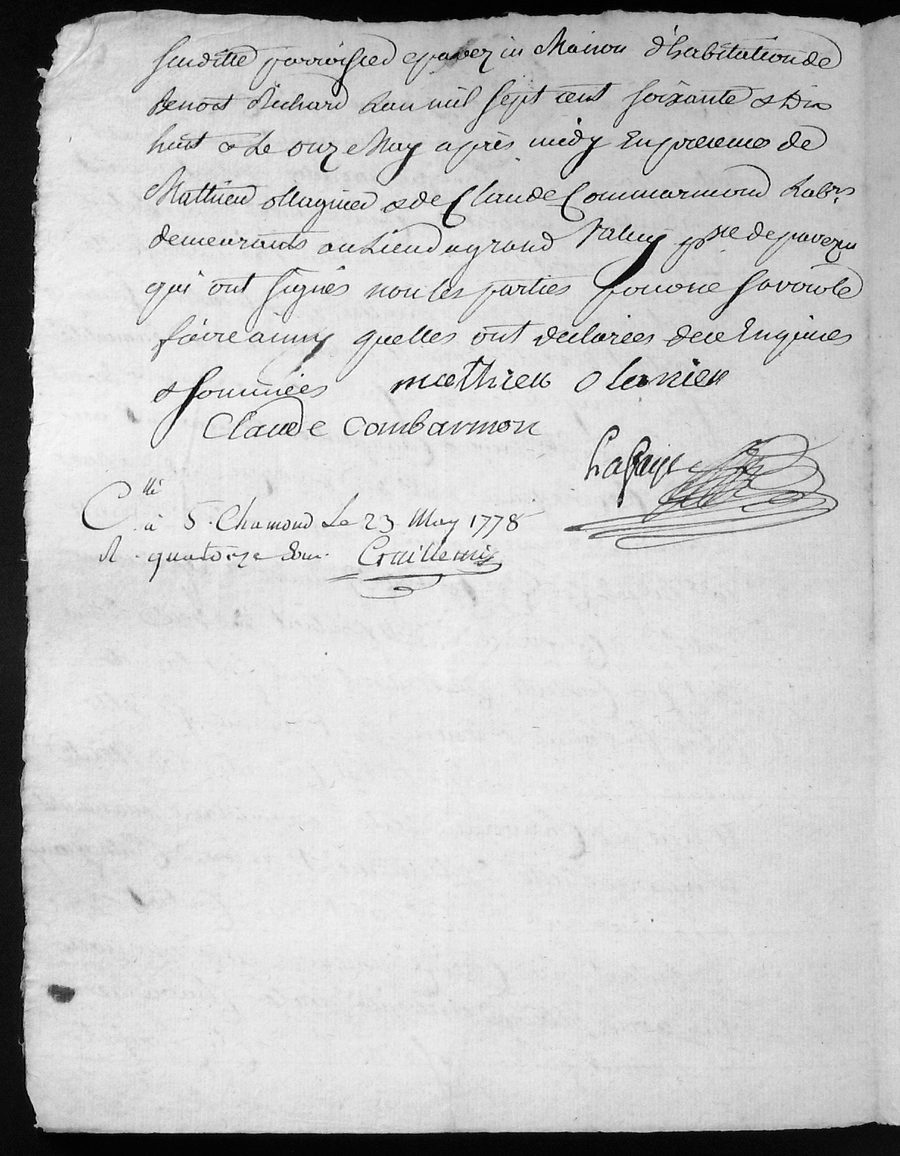 susditte parroisse de pavezin Maison d'habitation de
Benoit Richard Lan mil sept cent soixante & Dix
huit & Le onze May après midy En presence de
Mathieu ollagnier & de Claude Commarmond Lab^rs
demeurants au Lieu du grand Val psse de pavezin
qui ont signés non les parties pour ne savoir le
faire ainsy quelles ont declarées de ce Enquises
& sommées mathieu olanier
Claude Combarmon
C^llé
à S^t. Chamond Le 23 May 1778
R. quatorze sous